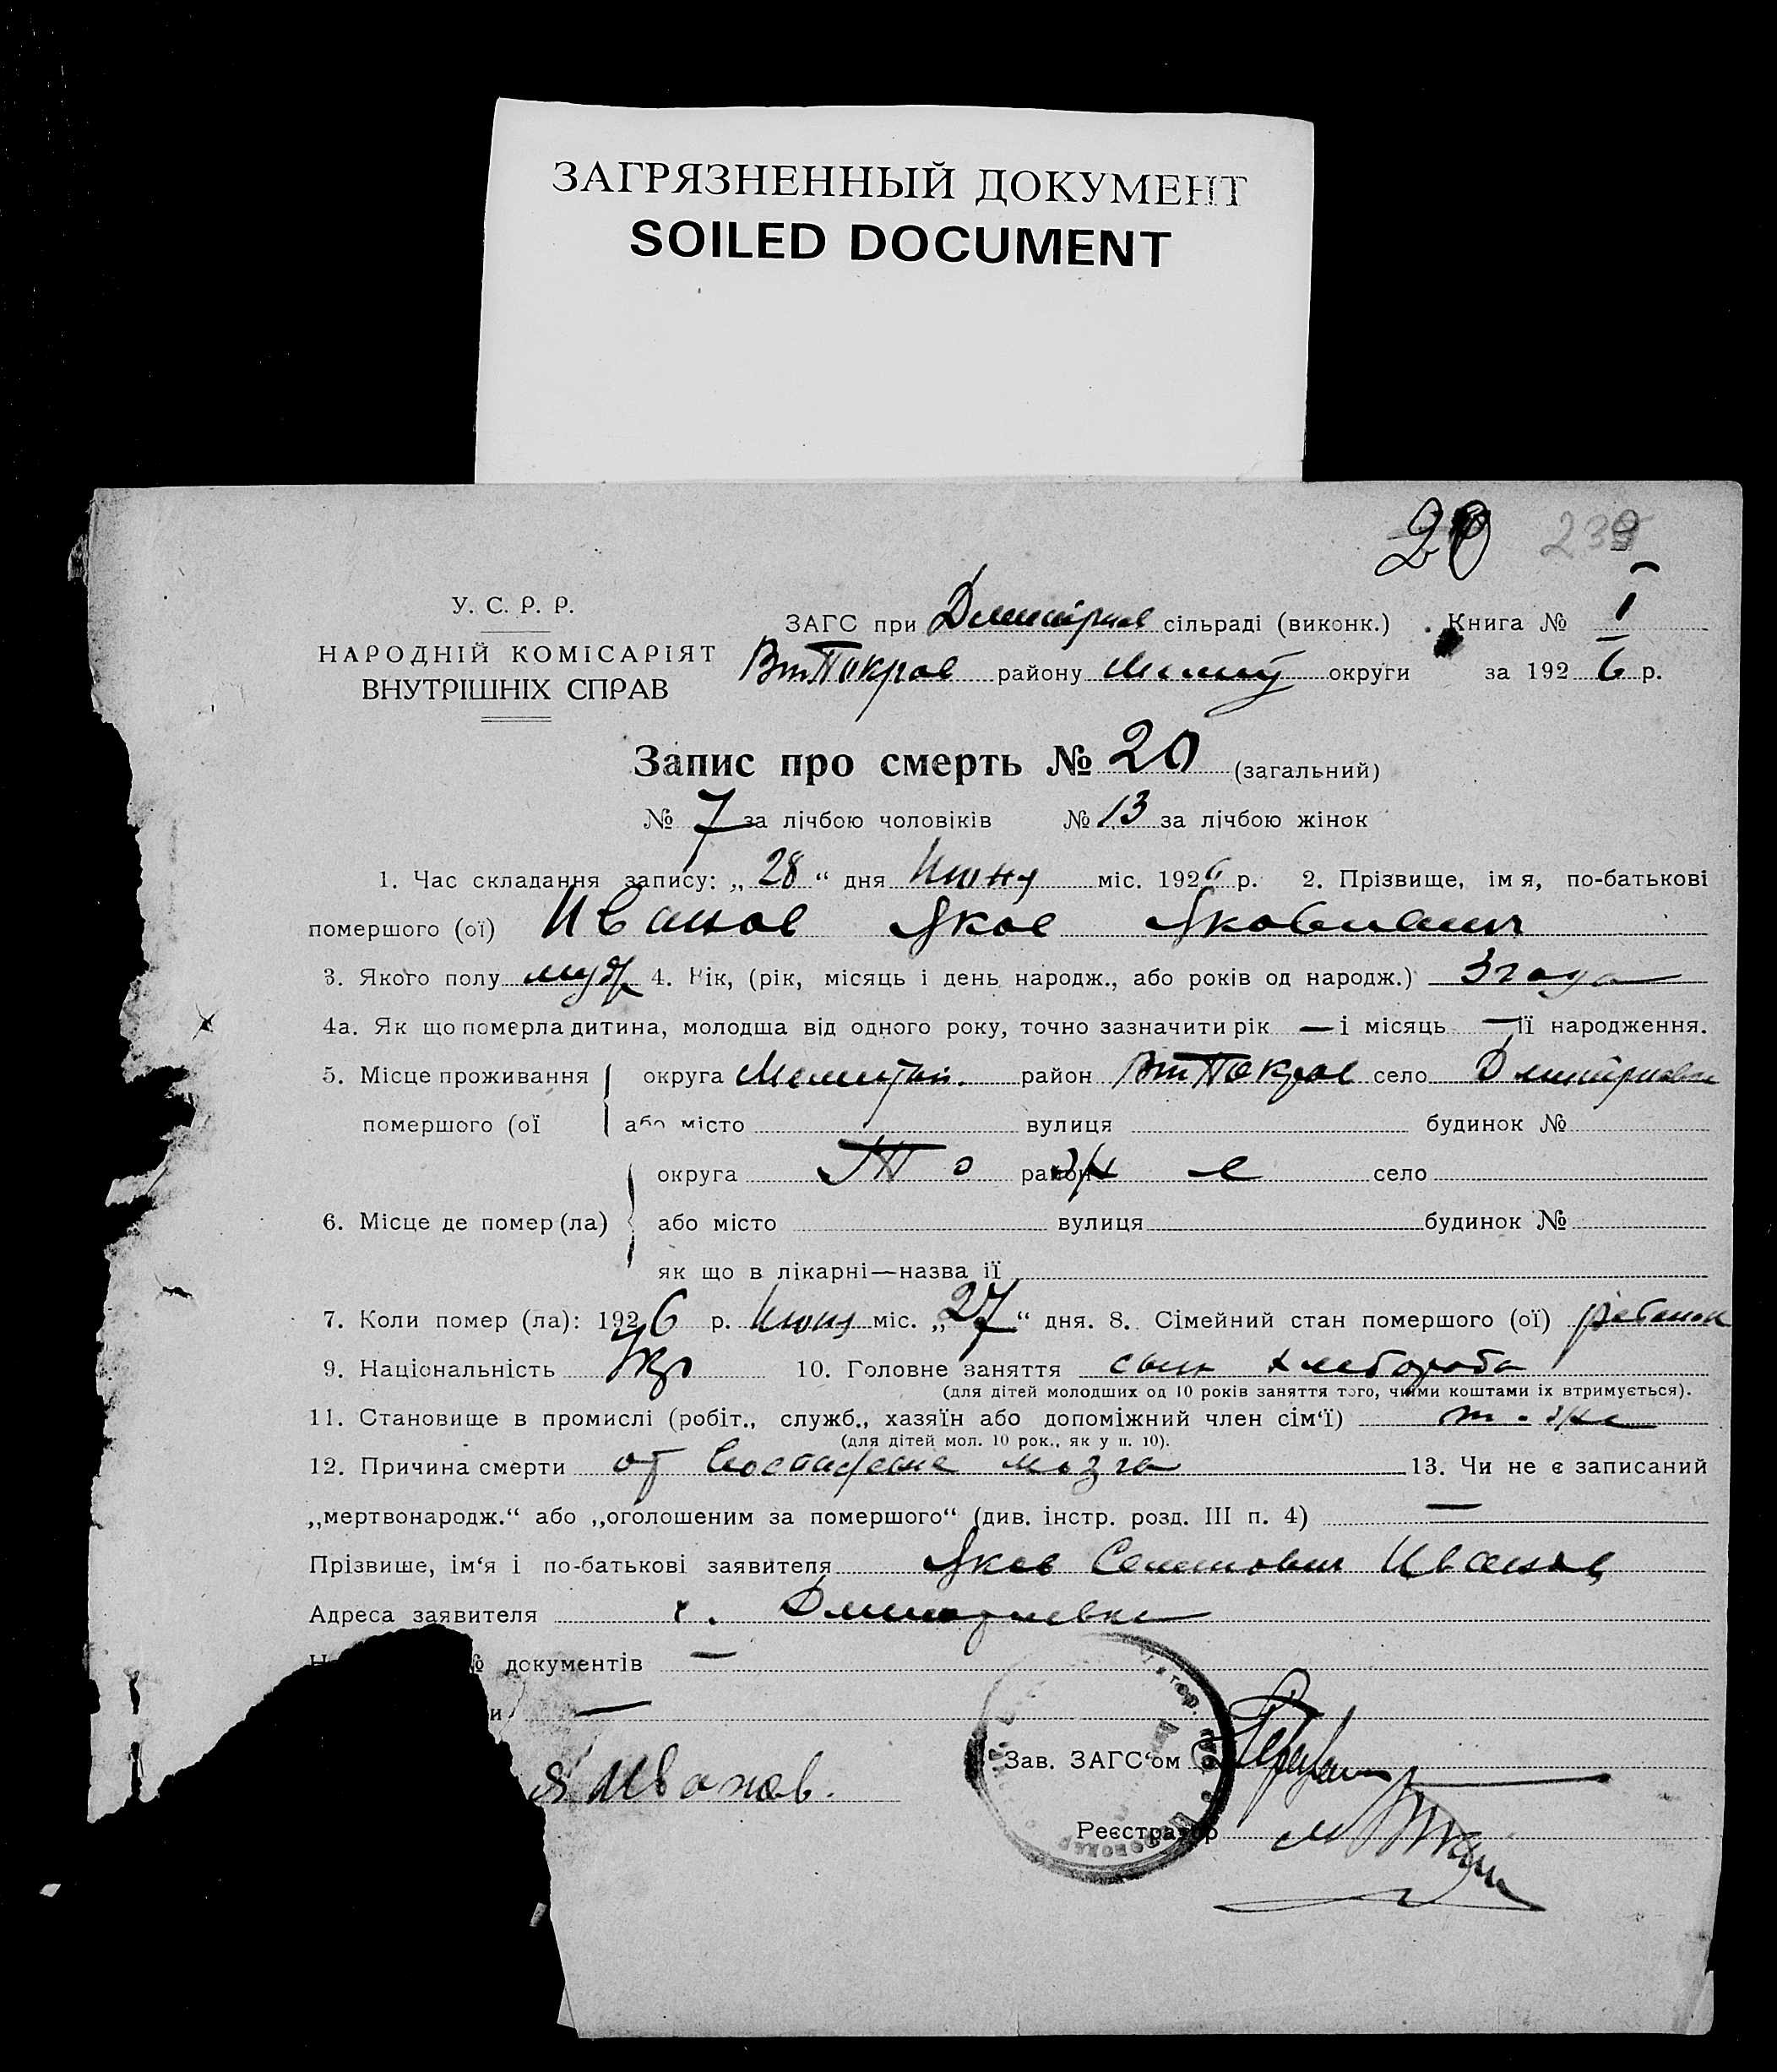 ЗАГРЯЗНЕННЫЙ ДОКУМЕНТ
SOILED DOCUMENT
20 239
У. С. Р. Р.
НАРОДНІЙ КОМІСАРІЯТ
ВНУТРІШНІХ СПРАВ
ЗАГС при Дмитріев сільраді (виконк.) Книга № I
ВтПокров району округи за 1926 р.
Запис про смерть № 20 (загальний)
№ 7 за лічбою чоловіків № 13 за лічбою жінок
1. Час складання запису: „28“ дня Июня міс. 1926 р. 2. Прізвище, імя, по-батькові
помершого (ої) Иванов Яков Яковлевич
3. Якого полу муж 4. Вік, (рік, місяць і день народж., або років од народж.) 3 года
4а. Як що померла дитина, молодша від одного року, точно зазначити рік — і місяць — її народження.
5. Місце проживання округа район ВтПокров село Дмитриевка
помершого (ої або місто вулиця будинок №
округа То район же село
6. Місце де помер (ла) або місто вулиця будинок №
як що в лікарні—назва її
7. Коли помер (ла): 1926 р. Июня міс. „27“ дня. 8. Сімейний стан помершого (ої) ребенок
9. Національність Укр 10. Головне заняття сын хлебороба
(для дітей молодших од 10 років заняття того, чиїми коштами їх втримується).
11. Становище в промислі (робіт., служб., хазяїн або допоміжний член сім‘ї) т. же
(для дітей мол. 10 рок., як у п. 10).
12. Причина смерти от Воспаление мозга 13. Чи не є записаний
„мертвонародж.“ або „оголошеним за помершого“ (див. інстр. розд. III п. 4) —
Прізвище, ім‘я і по-батькові заявителя Яков Иванов
Адреса заявителя с. Дмитриевка
№ документів —
и —
Я Иванов.
Зав. ЗАГС‘ом
Реєстратор